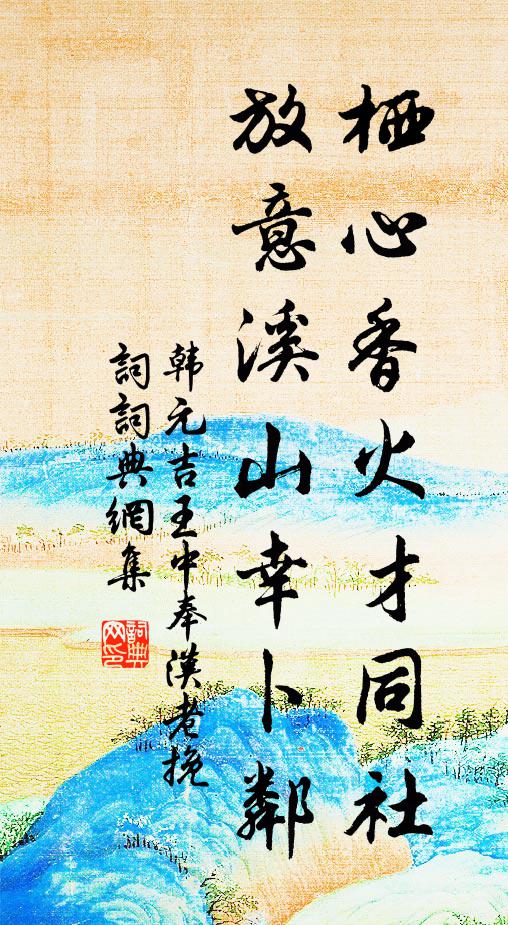 栖心香火才同社
放意溪山幸卜鄰
韩元吉王中奉漢老挽
詞詞典網集
詞典网印